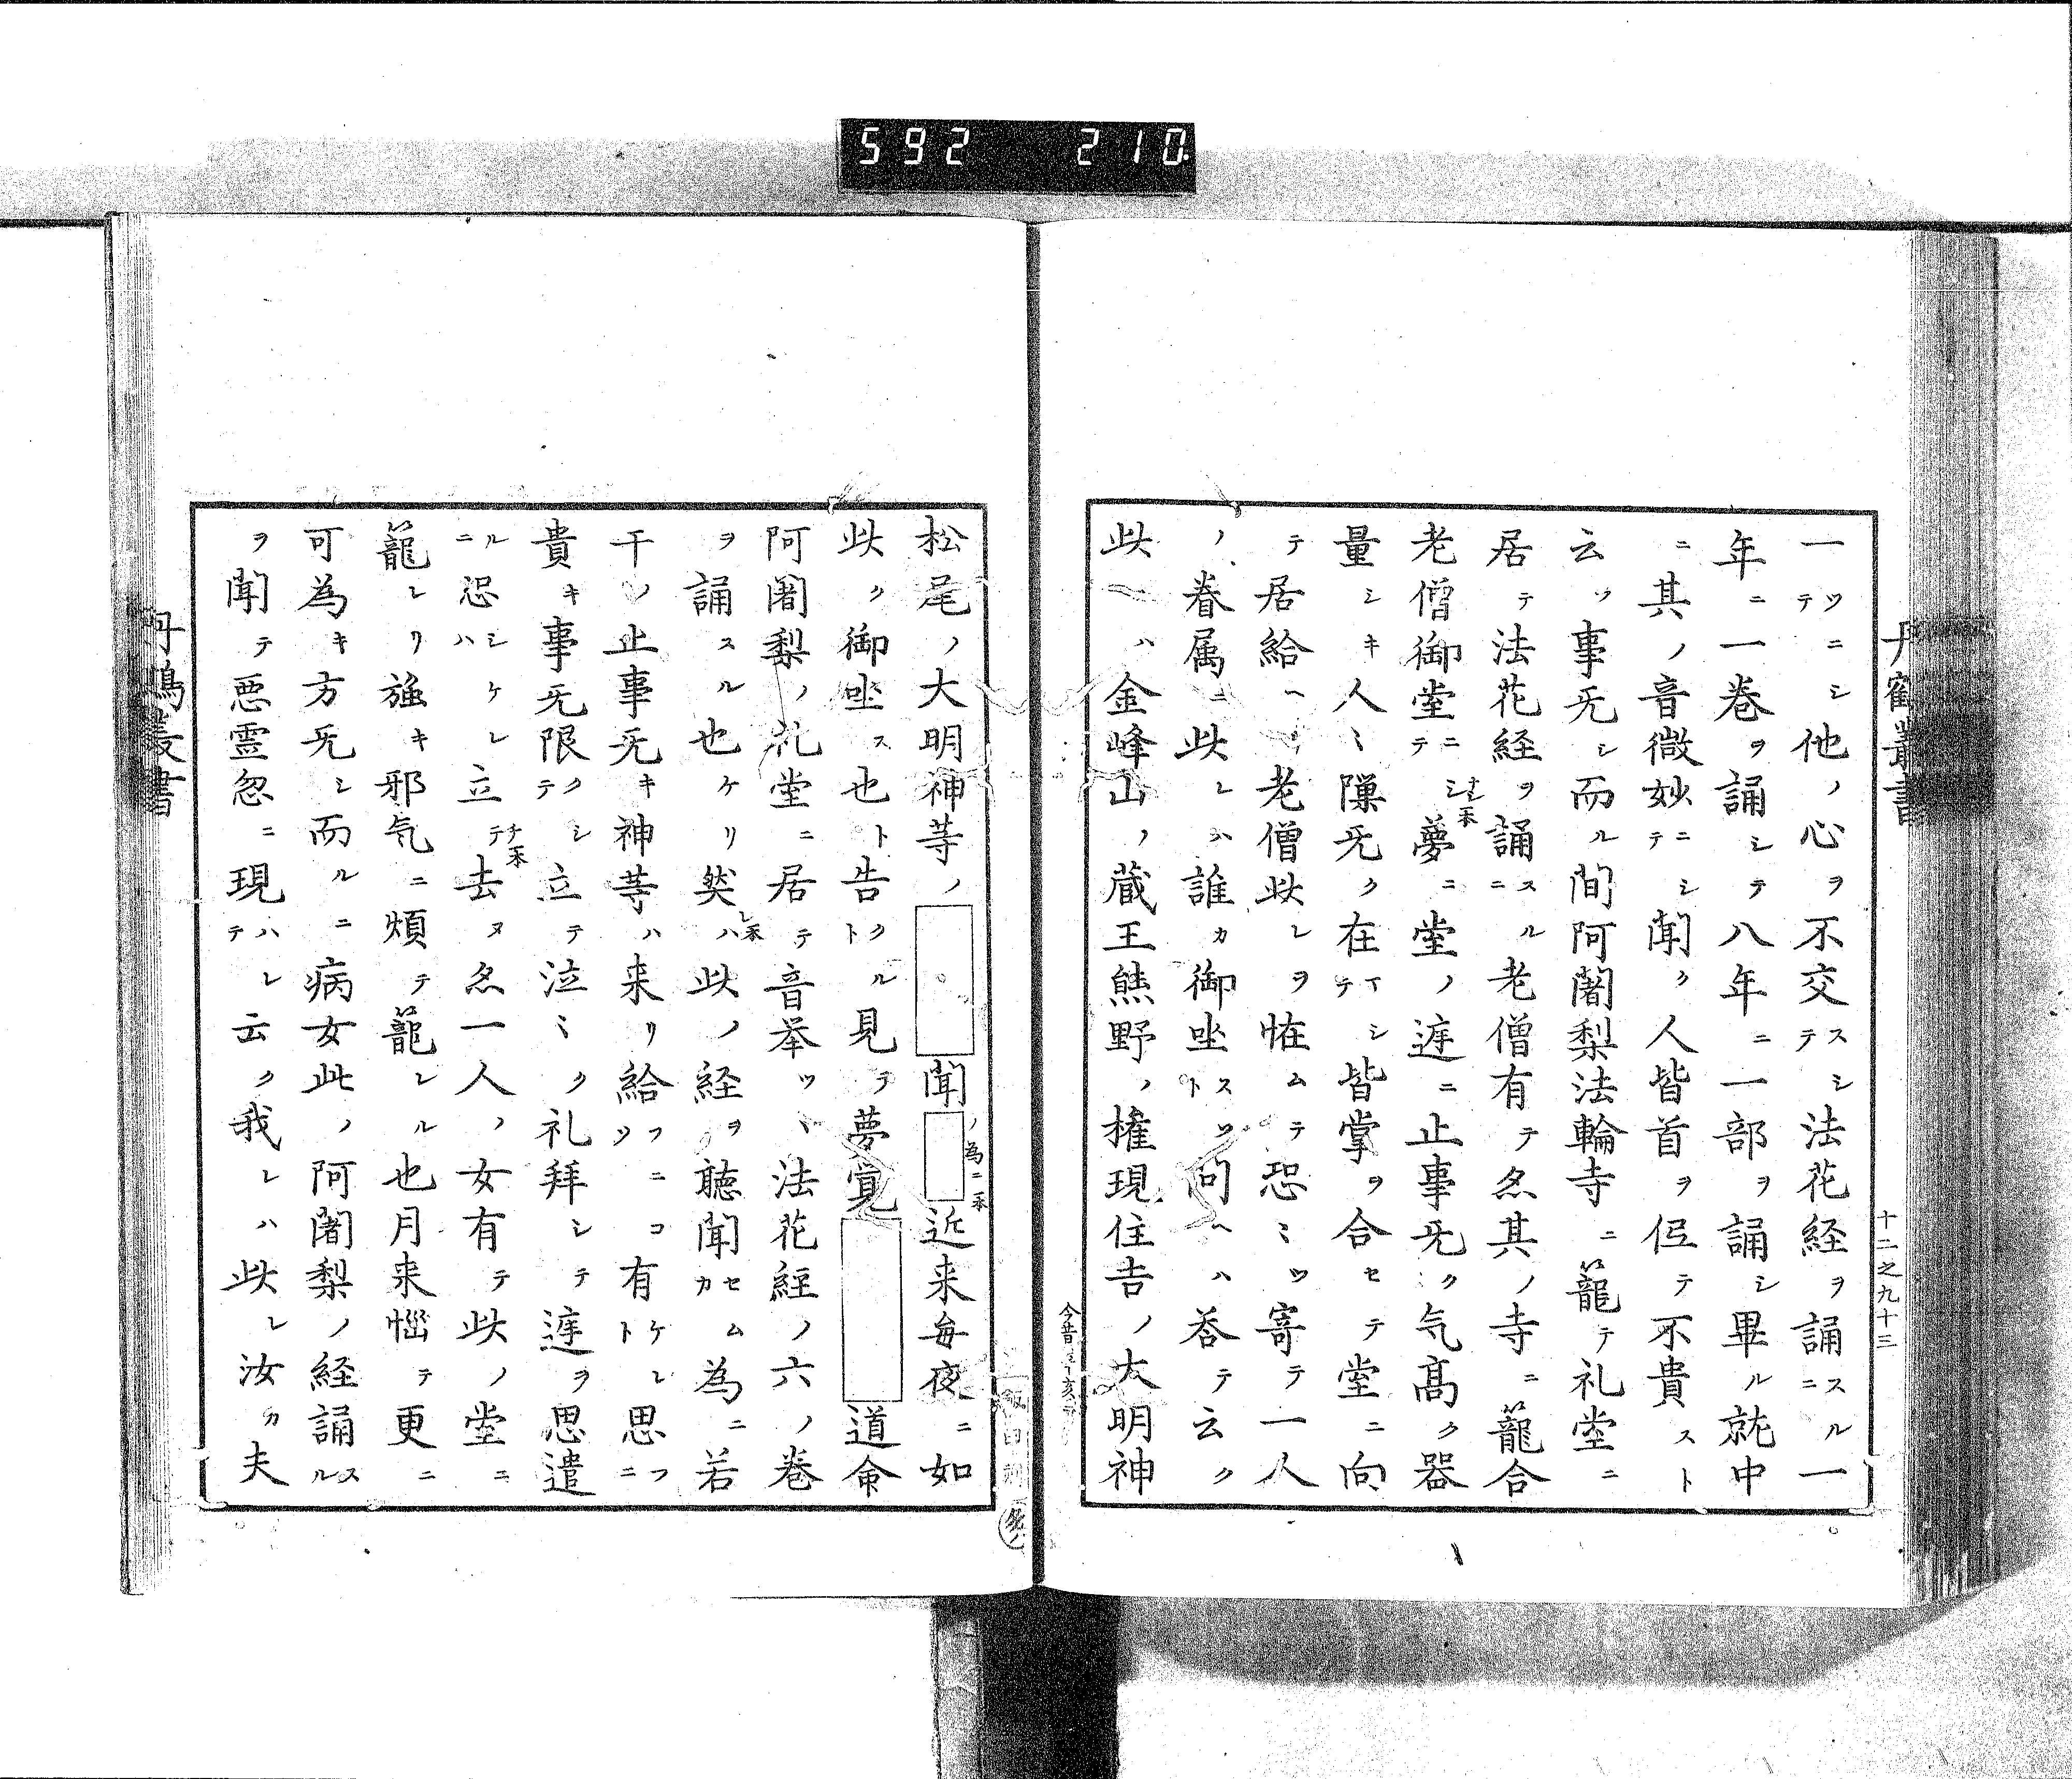 592 210
丹鶴叢書
十二之九十三
一ツニシテ他ノ心ヲ不交スシテ法花経ヲ誦スルニ一
年ニ一巻ヲ誦シテ八年ニ一部ヲ誦シ畢ル就中
ニ其ノ音微妙ニシテ聞ク人皆首ヲ低テ不貴スト
云フ事旡シ而ル間阿闍梨法輪寺ニ籠テ礼堂ニ
居テ法花経ヲ誦スルニ老僧有テ亦其ノ寺ニ籠合
老僧御堂ニシテ夢ニ堂ノ遅ニ止事旡ク気高ク器
量シキ人〻隟旡ク在イシテ皆掌ヲ合セテ堂ニ向
テ居給ヘリ老僧此レヲ恠ムテ恐ミツ寄テ一人
ノ眷属ニ此レハ誰カ御坐スソト問ヘハ答テ云ク
此ハ金峰山ノ蔵王熊野ノ権現住吉ノ大明神
松尾ノ大明神等ノ□聞□近来毎夜ニ如
ノ為ニ本
此ク御坐ス也ト告クルト見テ夢覚□道命
阿闍梨ノ礼堂ニ居テ音挙ツヽ法花経ノ六ノ巻
ヲ誦スル也ケリ然ハ此ノ経ヲ聴聞セムカ為ニ若
干ノ止事旡キ神等ハ来リ給フニコソ有ケレト思フニ
貴キ事旡限クシテ立テ泣〻ク礼拜シテ遅ヲ思遣
ルニ恐シケレハ立テ去ヌ亦一人ノ女有テ此ノ堂ニ
籠レリ強キ邪气ニ煩テ籠レル也月来悩テ更ニ
可為キ方旡シ而ルニ病女此ノ阿闍梨ノ経誦スル
ヲ聞テ悪霊忽ニ現ハレテ云ク我レハ此レ汝カ夫
丹鶴叢書